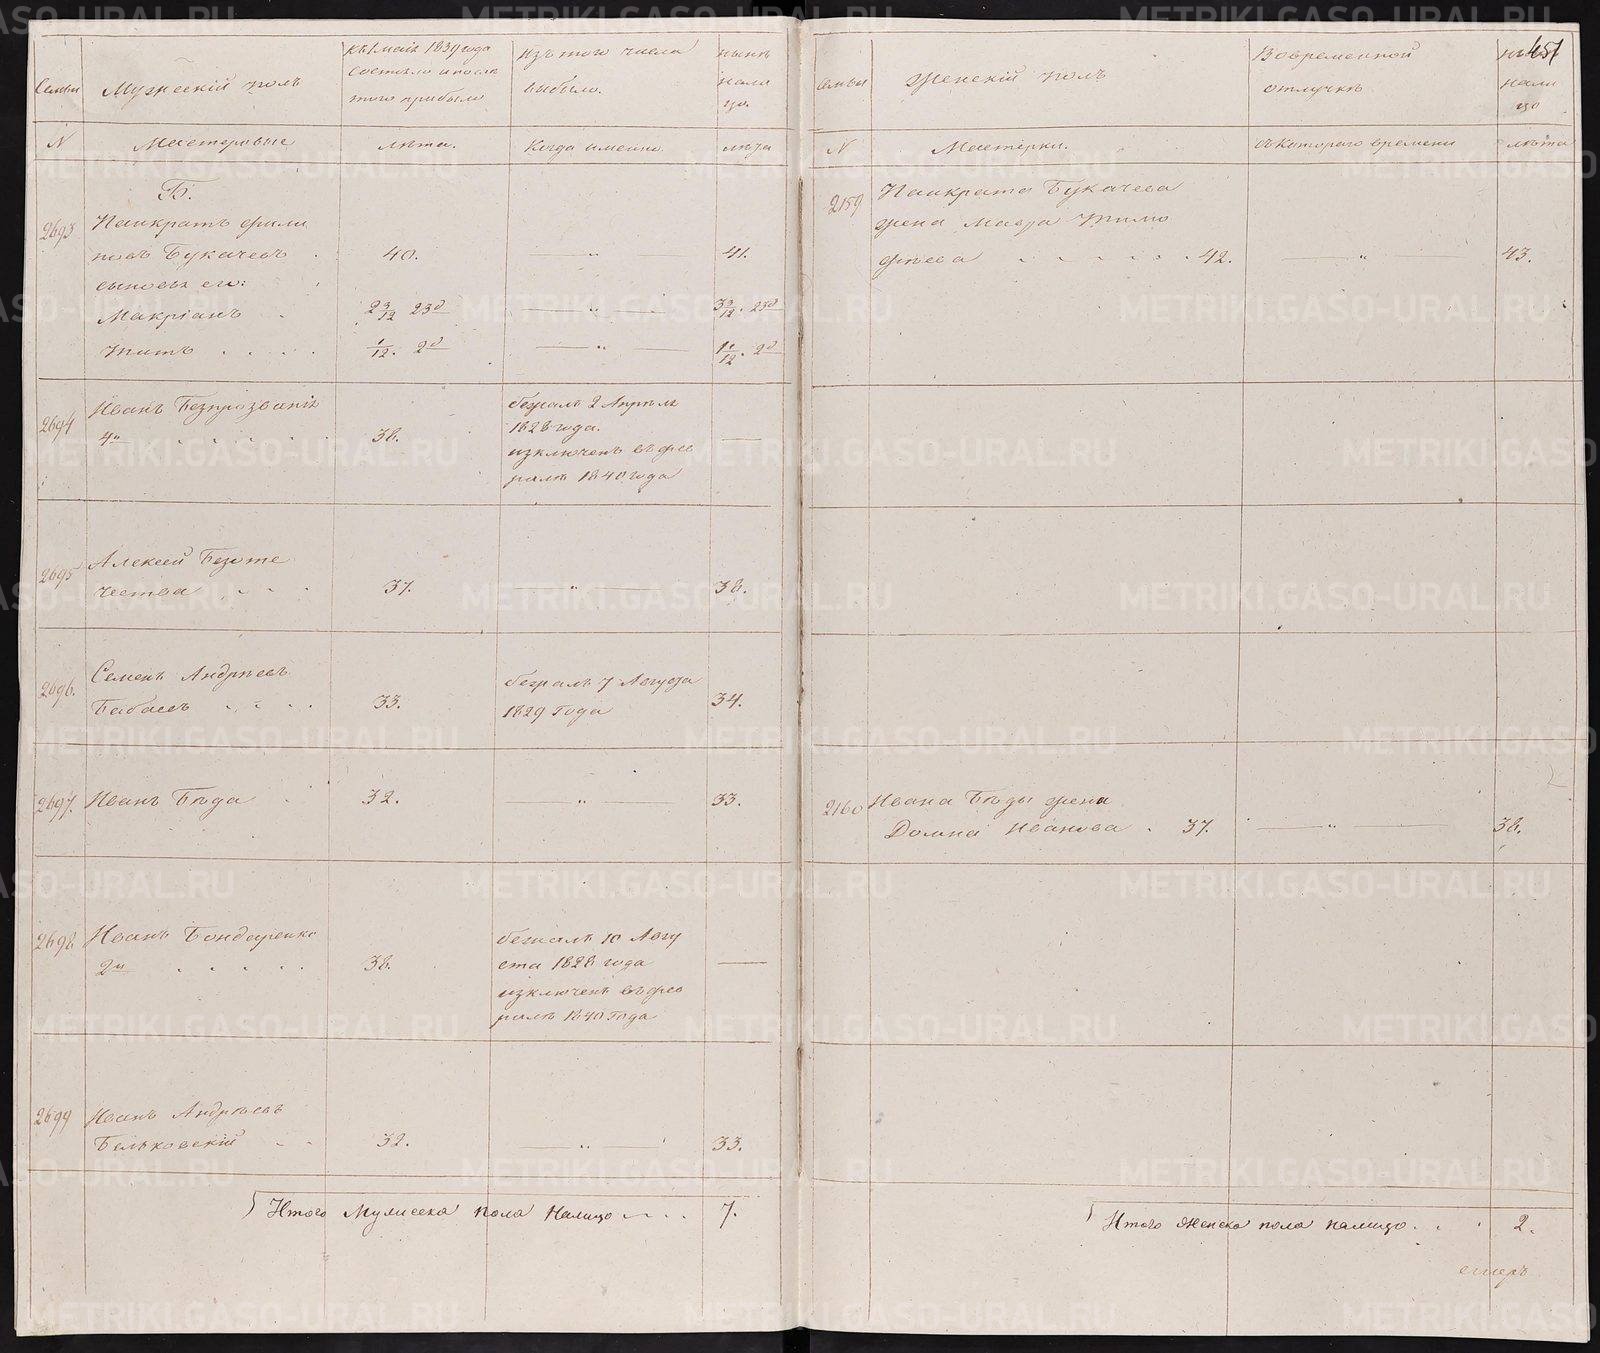 Семьи
Мужескій полъ
Къ 1 маія 1839 года
состояло и после
того прибыло
Изъ того числа
выбыло.
нынѣ
нали
цо.
N
Мастеровые
лѣта.
Когда имянно
лѣта
Б.
2693
Панкратъ Фили
повъ Букачевъ .
40.
41.
сыновья его:
Макріанъ .
2 3/12 23д
3 3/12. 23д
Титъ . . . .
1/12. 2д
1 1/12. 2д
2694
Иванъ Безпрозванiй
4й . . . . . .
38.
бежалъ 2 Апрѣля
1828 года.
изключенъ въ фев
ралѣ 1840 года
2695
Алексей Безоте
чества . . . .
37.
38.
2696.
Семенъ Андрѣевъ
Бабаевъ . . . .
33.
бежалъ 7 Августа
1829 года
34.
2697.
Иванъ Бѣда .
32.
33.
2698.
Иванъ Бондаренко
2й . . . . .
38.
бежалъ 10 Авгу
ста 1828 года
изключенъ въ фев
ралѣ 1840 года
2699
Иванъ Андрѣевъ
Бельковскій . .
32.
33.
Итого Мужеска пола налицо . . . .
7.
451
семьи
Женскій полъ
Во временной
отлучкѣ
нали
цо
N
Мастерки.
съ Котораго времени
лѣта
2159
Панкрата Букачева
жена Мавра Тимо
фѣева . . . . . . 42.
43.
2160
Ивана Бѣды жена
Домна Иванова . 37.
38.
Итого Женска пола налицо . . .
2.
METRIKI.GASO-URAL.RU